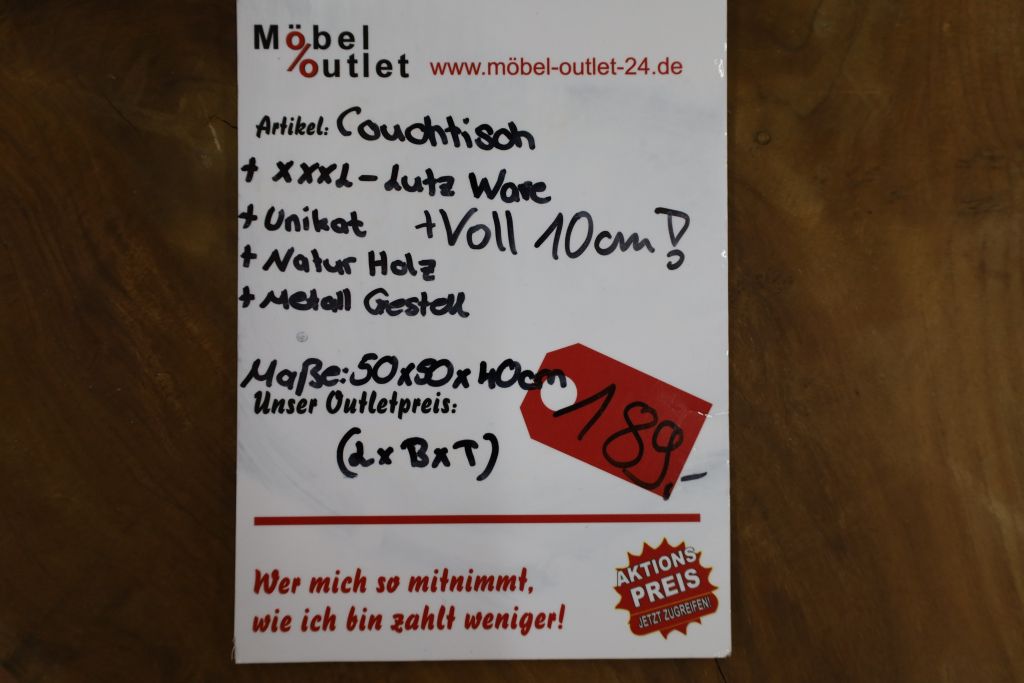 Möbel
%outlet www.möbel-outlet-24.de
Artikel: Couchtisch
+ XXXL-Lutz Ware
+ Unikat + Voll 10cm!
+ Natur Holz
+ Metall Gestell
Maße: 50x50x40cm
Unser Outletpreis:
189.-
(LxBxT)
Wer mich so mitnimmt,
wie ich bin zahlt weniger!
AKTIONS
PREIS
JETZT ZUGREIFEN!